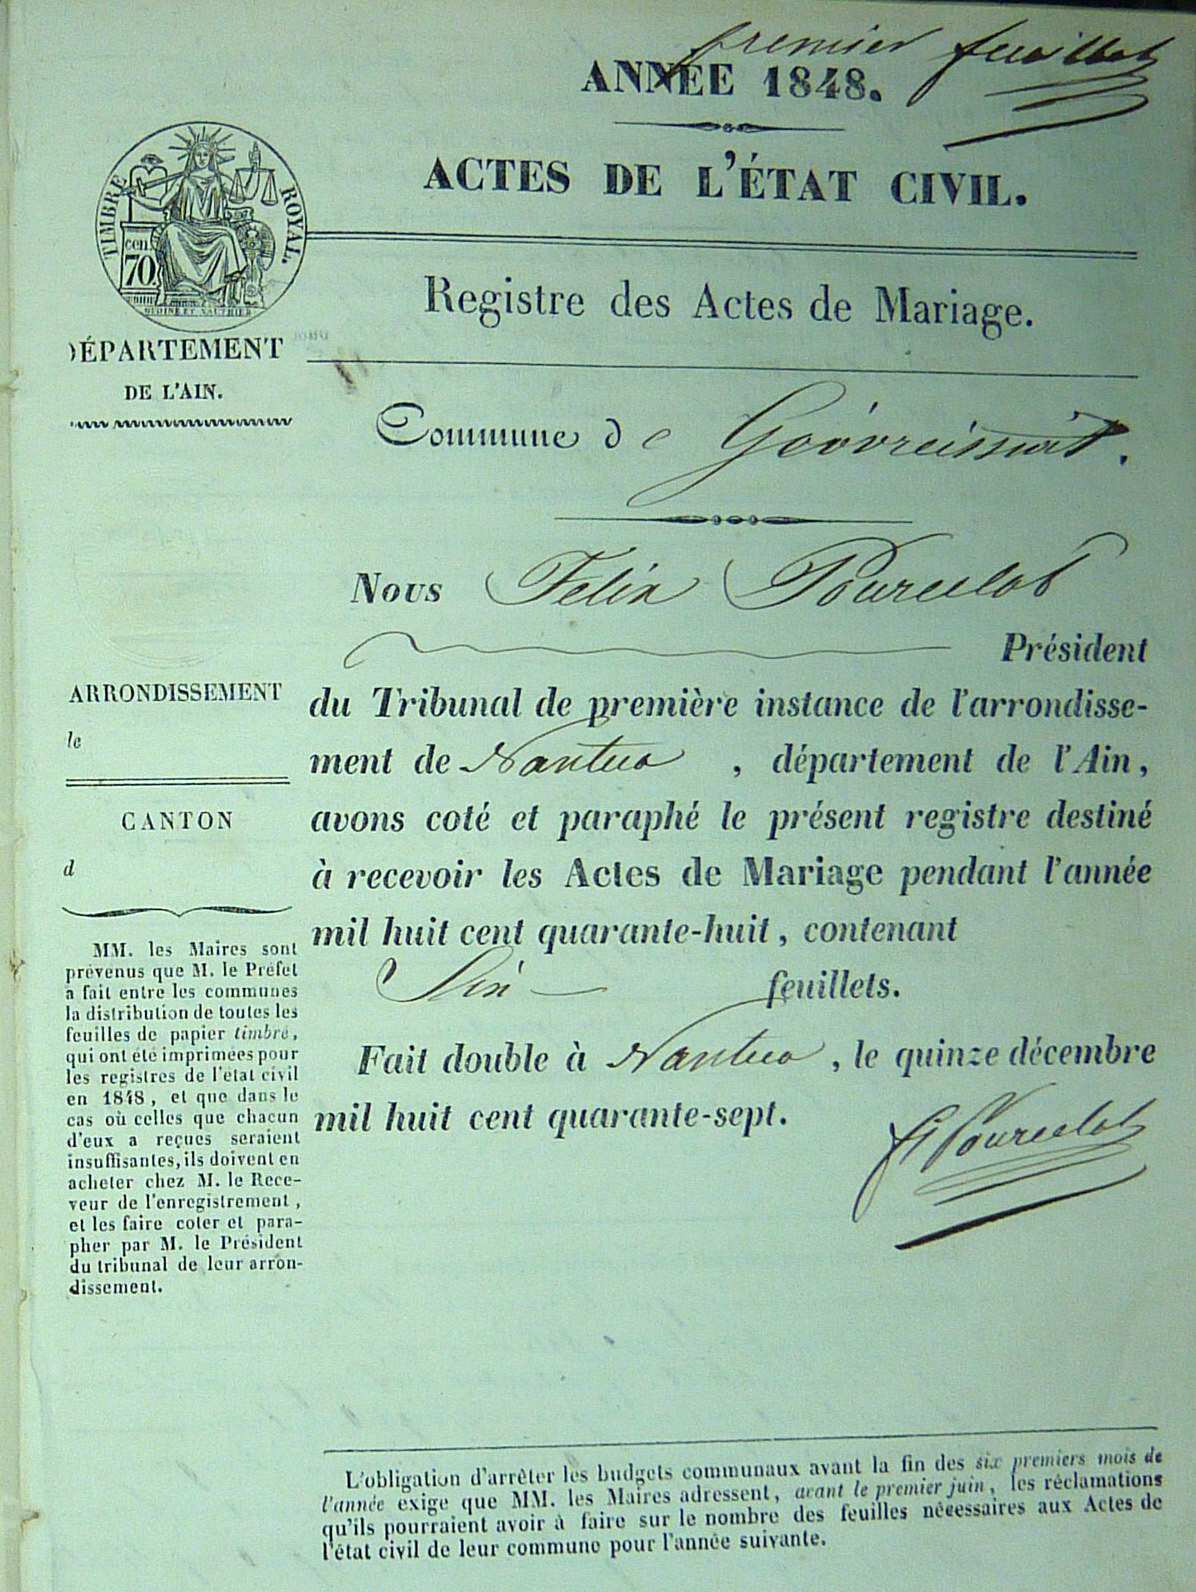 premier feuillet
ANNÉE 1848.
ACTES DE L'ÉTAT CIVIL.
TIMBRE ROYAL.
cen.
70.
Registre des Actes de Mariage.
DÉPARTEMENT
DE L'AIN.
Commune de Géovreissiat.
Nous Félix Pourcelot
Président
du Tribunal de première instance de l'arrondisse-
ment de Nantua, département de l'Ain,
avons coté et paraphé le présent registre destiné
à recevoir les Actes de Mariage pendant l'année
mil huit cent quarante-huit, contenant
Six feuillets.
Fait double à Nantua, le quinze décembre
mil huit cent quarante-sept.
Pourcelot
ARRONDISSEMENT
de
CANTON
d
MM. les Maires sont
prévenus que M. le Préfet
a fait entre les communes
la distribution de toutes les
feuilles de papier timbré,
qui ont été imprimées pour
les registres de l'état civil
en 1848, et que dans le
cas où celles que chacun
d'eux a reçues seraient
insuffisantes, ils doivent en
acheter chez M. le Rece-
veur de l'enregistrement,
et les faire coter et para-
pher par M. le Président
du tribunal de leur arron-
dissement.
L'obligation d'arrêter les budgets communaux avant la fin des six premiers mois de
l'année exige que MM. les Maires adressent, avant le premier juin, les réclamations
qu'ils pourraient avoir à faire sur le nombre des feuilles nécessaires aux Actes de
l'état civil de leur commune pour l'année suivante.